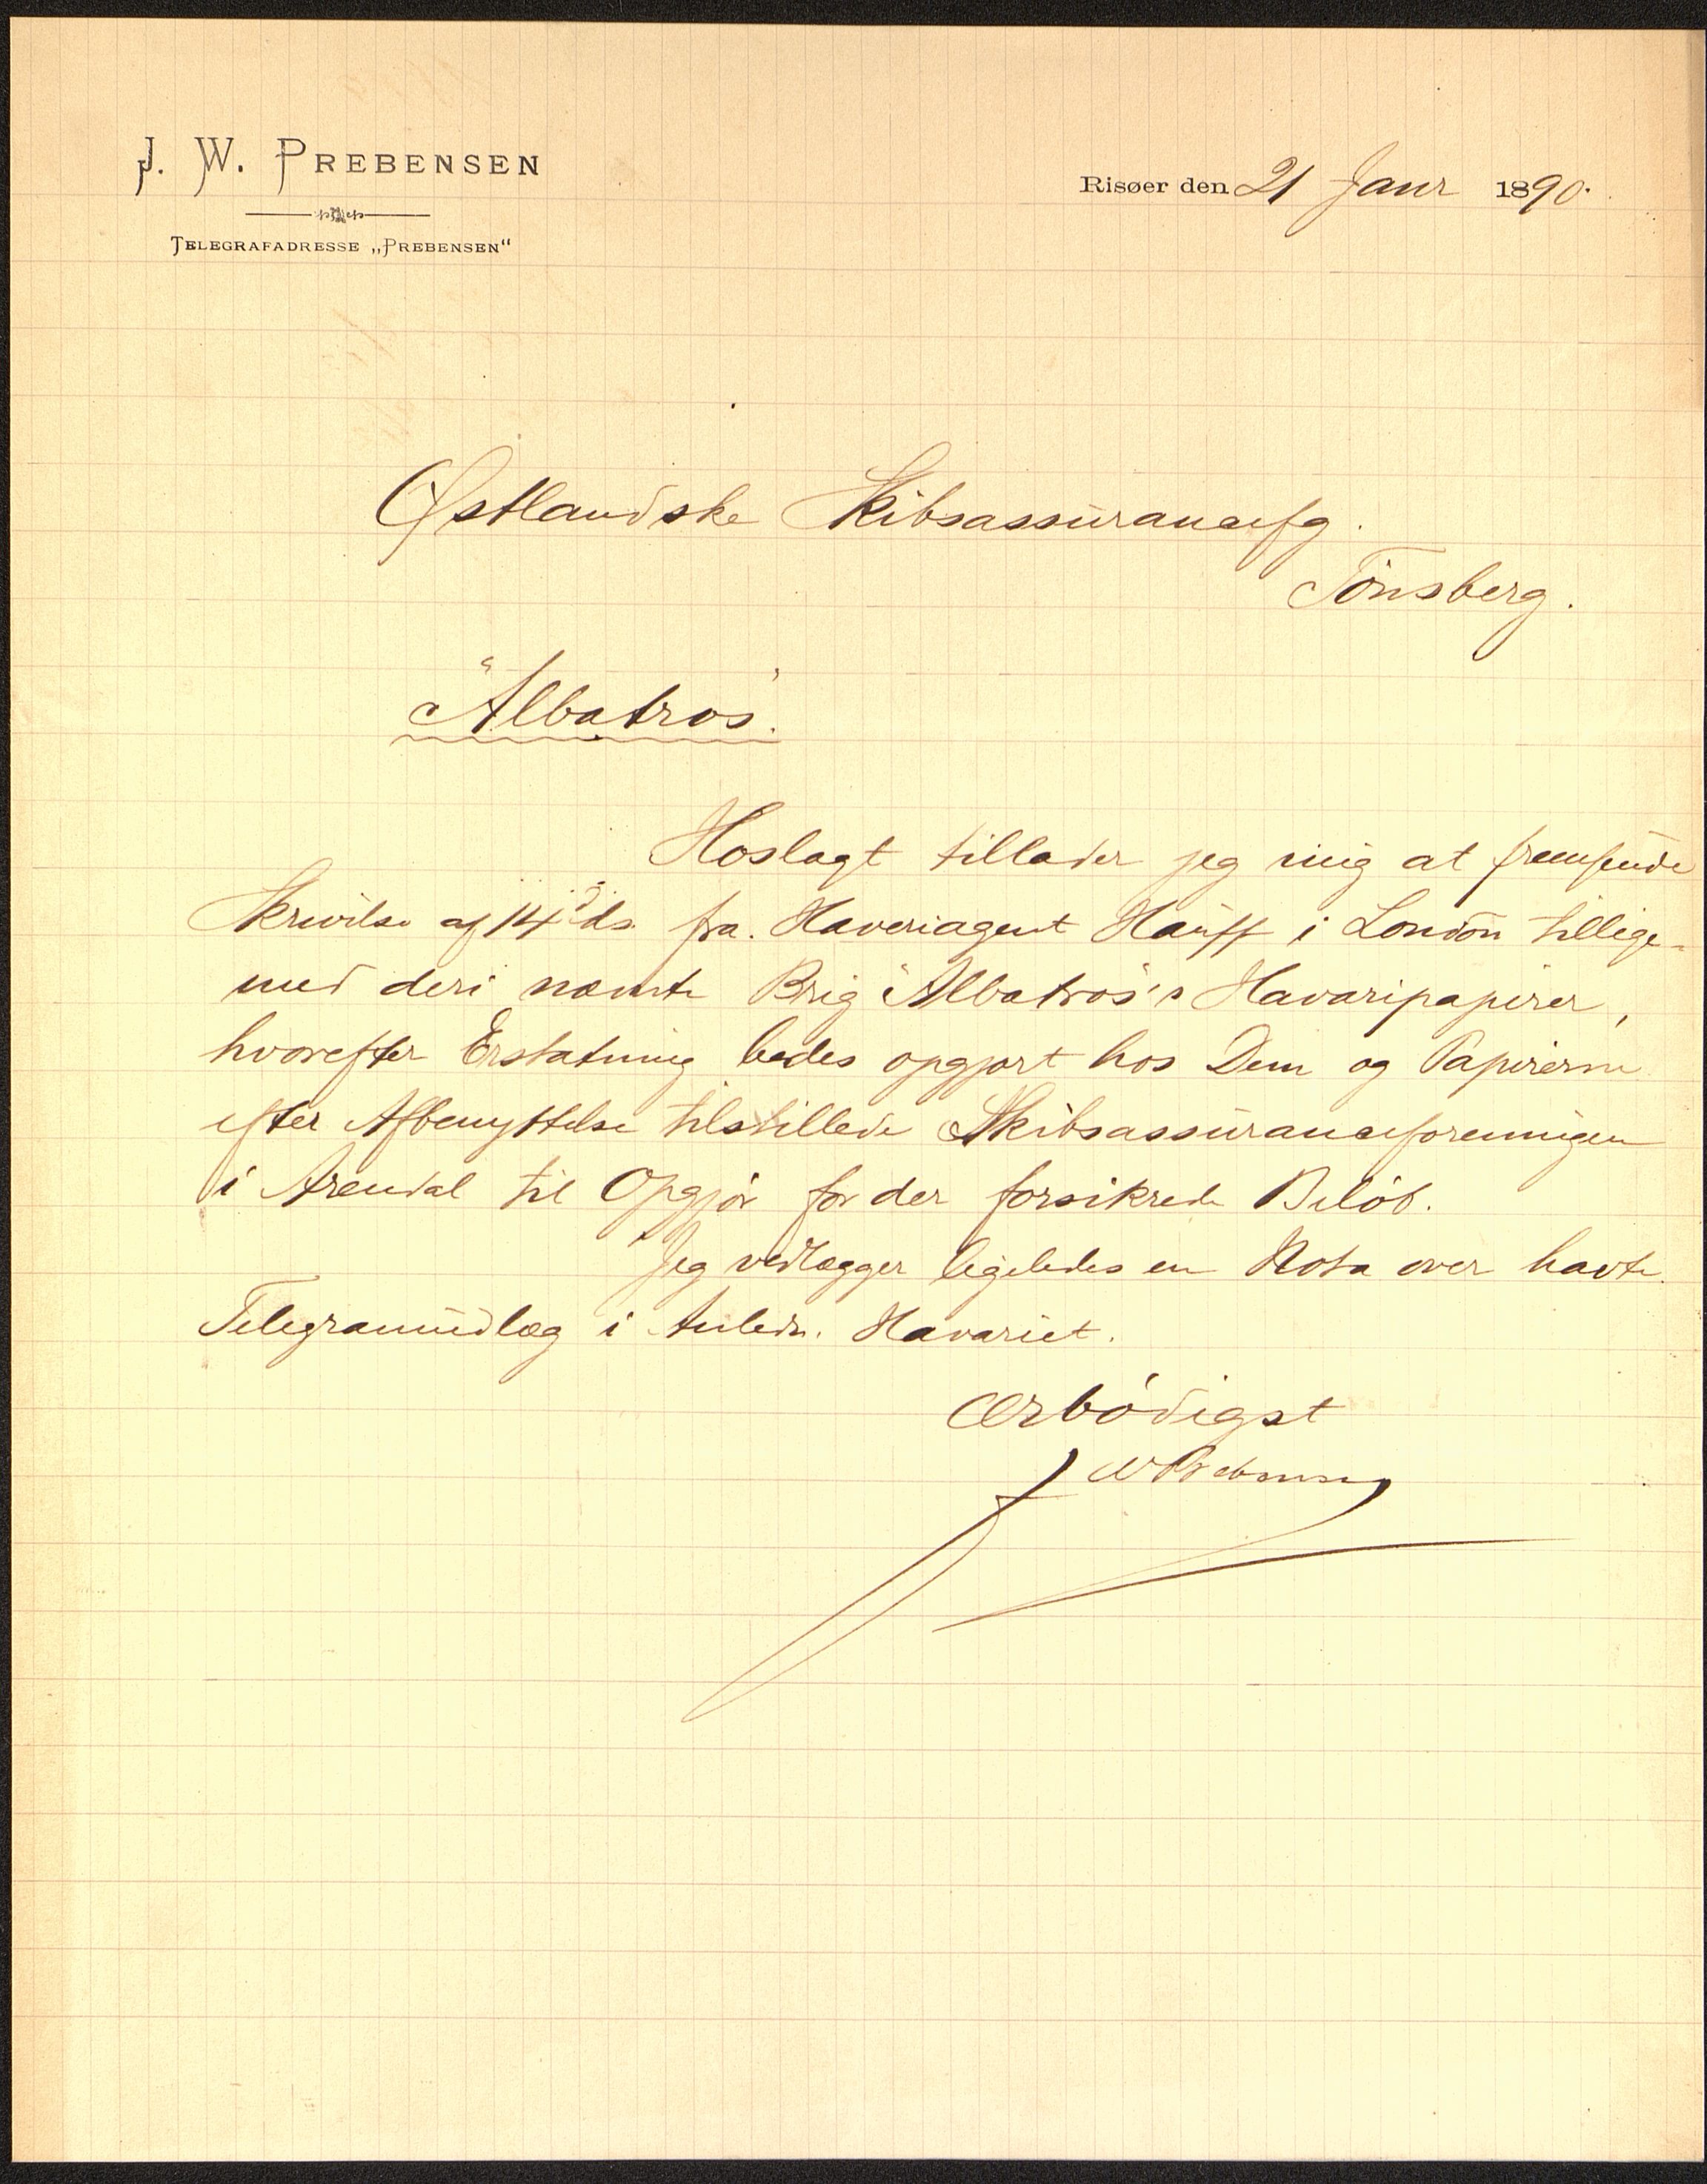 J. W. PREBENSEN
TELEGRAFADRESSE „PREBENSEN“
Risøer den 21 Janr 1890.
Østlandske Skibsassurancefg.
Tönsberg.
"Albatros".
Hoslagt tillader jeg mig at fremsende
Skrivelse af 14 ds. fra. Haveriagent Hauff i London tillige-
med deri nævnte Brig "Albatros"s Havaripapirer,
hvorefter Erstatning bedes opgjort hos Dem og Papirerne
efter Afbenyttelse tilstillede Skibsassuranceforeningen
i Arendal til Opgjör for der forsikrede Belöb.
Jeg vedlægger ligeledes en Nota over havte
Telegramudlæg i Anledn. Havariet.
Ærbödigst
J W Prebensen